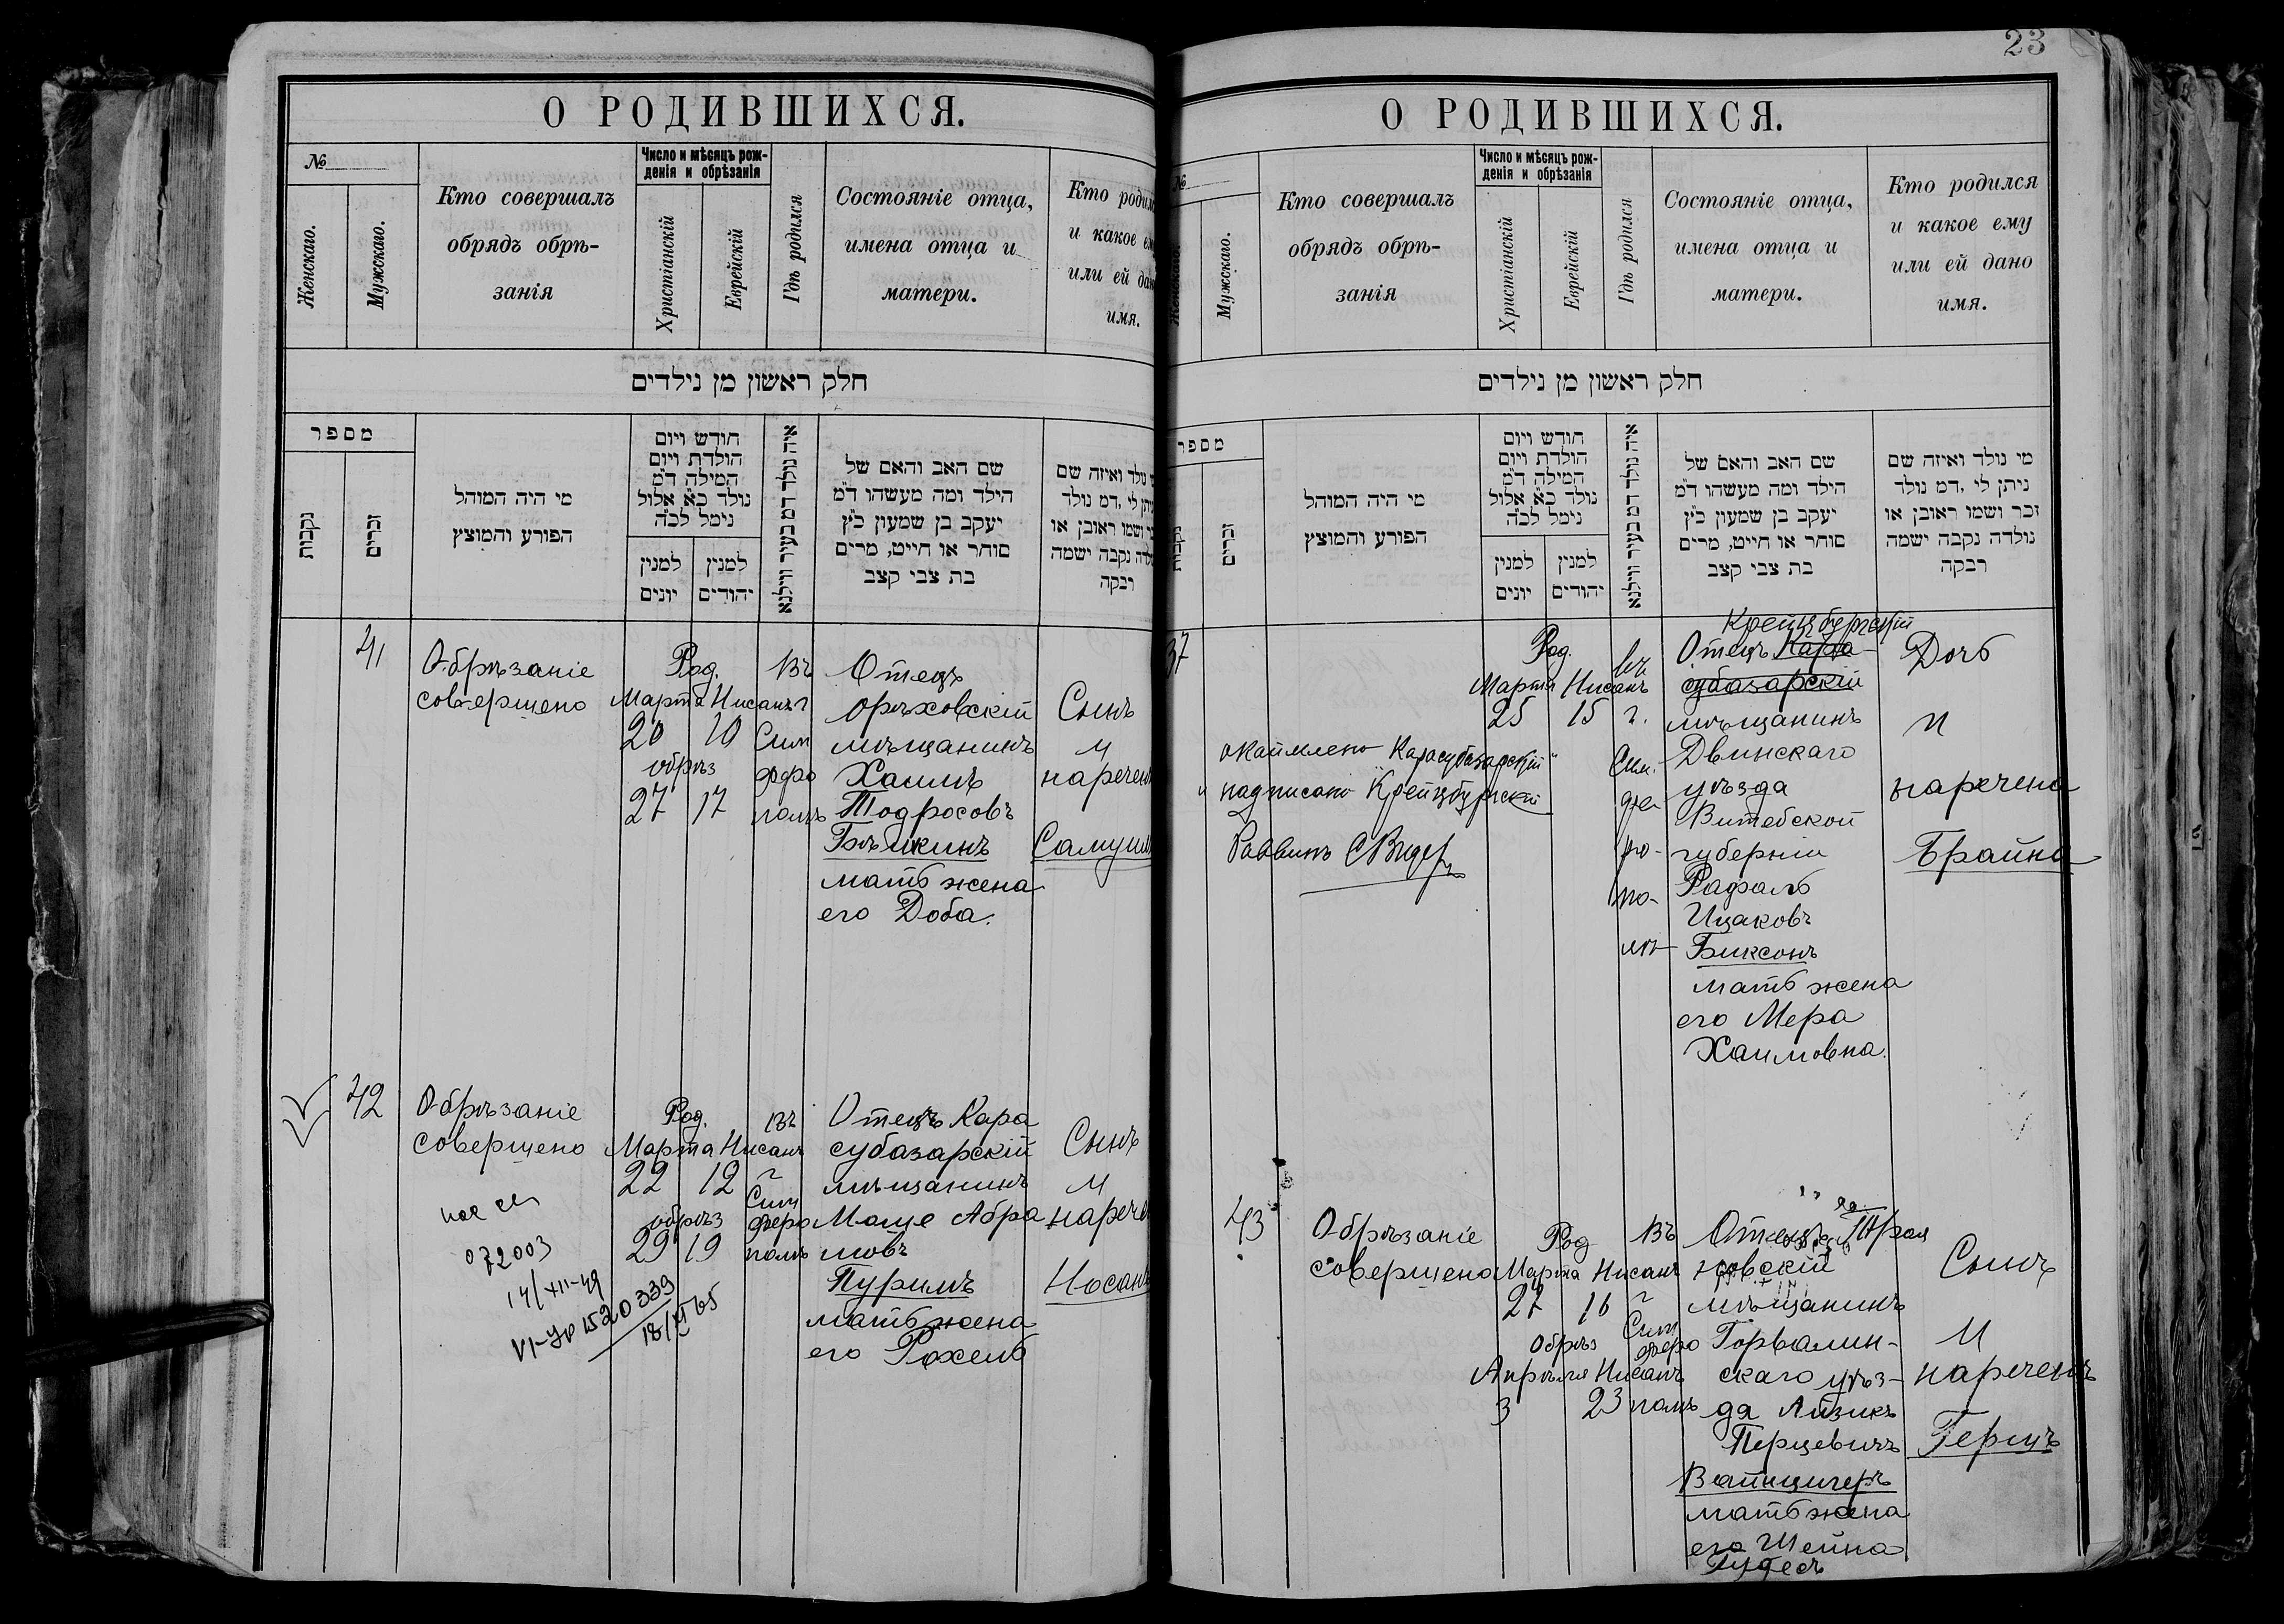 О РОДИВШИХСЯ.
№
Женскаго.
Мужскаго.
Кто совершалъ
обрядъ обрѣ-
занія
Число и мѣсяцъ рож-
денія и обрѣзанія
Христіанскій
Еврейскій
Гдѣ родился
Состояніе отца,
имена отца и
матери.
Кто родил
и какое ем
или ей дан
имя.
חלק ראשון מן נילדים
מספר
נקבות
זכרים
מי היה המוהל
הפורע והמוצץ
חודש ויום
הולדת ויום
המילה ד״מ
נולד כ״א אלול
נימל לכ״ה
למנין
יונים
למנין
יהודים
איה נולד דמ בעיר ווילנא
שם האב והאם של
הילד ומה מעשהו ד״מ
יעקב בן שמעון כ״ץ
סוחר או חייט, מרים
בת צבי קצב
נולד ואיזה שם
יתן לי ,דמ נולד
ושמו ראובן או
נקבה ישמה
רבקה
41
Обрѣзаніе
совершено
Род.
Марта Нисанъ
20 10
обрѣз
27 17
Въ
г
Сим
феро
полѣ
Отецъ
орѣховскій
мѣщанинъ
Хаимъ
Тодросовъ
Бѣйкинъ
мать жена
его Доба.
Сынъ
и
наречен
Самуил
42
Обрѣзаніе
совершено
072003
14/XII-49
VI-УР 1520339
18/XI 65
Род.
Марта Нисанъ
22 12
обрѣз
29 19
въ
г
Сим
феро
полѣ
Отецъ Кара
субазарскій
мѣщанинъ
Моше Абра
мовъ
Пуримъ
мать жена
его Рохель
Сынъ
и
наречен
Носон
23
О РОДИВШИХСЯ.
№
Женскаго.
Мужскаго.
Кто совершалъ
обрядъ обрѣ-
занія
Число и мѣсяцъ рож-
денія и обрѣзанія
Христіанскій
Еврейскій
Гдѣ родился
Состояніе отца,
имена отца и
матери.
Кто родился
и какое ему
или ей дано
имя.
חלק ראשון מן נילדים
מספר
נקבות
זכרים
מי היה המוהל
הפורע והמוצץ
חודש ויום
הולדת ויום
המילה ד״מ
נולד כ״א אלול
נימל לכ״ה
למנין
יונים
למנין
יהודים
איה נולד דמ בעיר ווילנא
שם האב והאם של
הילד ומה מעשהו ד״מ
יעקב בן שמעון כ״ץ
סוחר או חייט, מרים
בת צבי קצב
מי נולד ואיזה שם
ניתן לי ,דמ נולד
זכר ושמו ראובן או
נולדה נקבה ישמה
רבקה
37
Род.
Марта Нисанъ
25 15
въ
г.
Сим-
фе-
ро-
по-
лѣ
Крейцбургскій
Отецъ Кара-
субазарскій
мѣщанинъ
Двинскаго
уѣзда
Витебской
губерніи
Рафаль
Ицаковъ
Биксонъ
мать жена
его Мера
Хаимовна.
Дочь
и
наречена
Брайна
"Карасубазарскій"
надписано Крейцбургскій
Раввинъ
43
Обрѣзаніе
совершено
Род
Марта Нисанъ
27 16
Обрѣз
Апрѣля Нисанъ
3 23
Въ
г
Сим
феро
полѣ
Отецъ
новскій
мѣщанинъ
скаго уѣз-
да Айзикъ
Перцевичъ
Вайнцигеръ
мать жена
его Шейна
Гудесъ
Сынъ
и
нареченъ
Герцъ